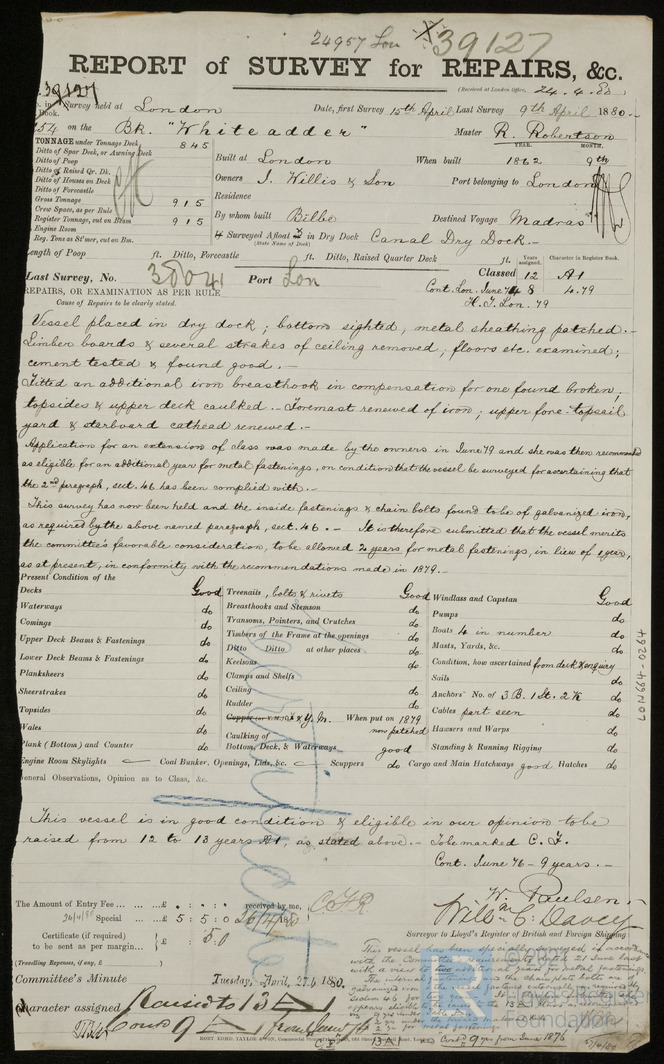 24957 Lon 39127
REPORT of SURVEY for REPAIRS, &c.
(Received at London Office, 24.4.80
39127
Survey held at London Date, first Survey 15th April Last Survey 9th April 1880.-
on the Bk. "Whiteadder" Master R. Robertson
TONNAGE under Tonnage Deck 845
Ditto of Spar Deck, or Awning Deck
Ditto of Poop
Ditto of Raised Qr. Dk.
Ditto of Houses on Deck
Ditto of Forecastle
Gross Tonnage 915
Crew Space, as per Rule
Register Tonnage, cut on Beam 915
Engine Room
Reg. Tons as St'mer, cut on Bm.
YEAR. MONTH.
Built at London When built 1862 9th
Owners J. Willis & Son Port belonging to London
Residence
By whom built Bilbe Destined Voyage Madras
Surveyed Afloat & in Dry Dock Canal Dry Dock.-
(State Name of Dock)
Length of Poop ft. Ditto, Forecastle ft. Ditto, Raised Quarter Deck ft.
Years assigned. Character in Register Book.
Last Survey, No. 38004 Port Lon
Classed 12 A1
Cont. Lon. June 74 8 4.79
H.T. Lon. 79
REPAIRS, OR EXAMINATION AS PER RULE
Cause of Repairs to be clearly stated.
Vessel placed in dry dock; bottom sighted, metal sheathing patched.-
Limber boards & several strakes of ceiling removed; floors etc. examined;
cement tested & found good.-
Fitted an additional iron breasthook in compensation for one found broken;
topsides & upper deck caulked.- Foremast renewed of iron; upper fore-topsail
yard & starboard cathead renewed.-
Application for an extension of class was made by the owners in June 79 and she was then recommended
as eligible for an additional year for metal fastenings, on condition that the vessel be surveyed for ascertaining that
the 2nd paragraph, sect. 46 has been complied with.-
This survey has now been held and the inside fastenings & chain bolts found to be of galvanized iron,
as required by the above named paragraph, sect. 46.- It is therefore submitted that the vessel merits
the committee's favorable consideration, to be allowed 2 years for metal fastenings, in lieu of 1 year,
as at present, in conformity with the recommendations made in 1879.-
Present Condition of the
Decks Good
Waterways do
Comings do
Upper Deck Beams & Fastenings do
Lower Deck Beams & Fastenings do
Planksheers do
Sheerstrakes do
Topsides do
Wales do
Plank (Bottom) and Counter do
Treenails, bolts & rivets Good
Breasthooks and Stemson do
Transoms, Pointers, and Crutches do
Timbers of the Frame at the openings do
Ditto Ditto at other places do
Keelsons do
Clamps and Shelfs do
Ceiling do
Rudder do
Copper or Y.M. When put on 1879
now patched
Caulking of
Bottom, Deck, & Waterways good
Windlass and Capstan Good
Pumps do
Boats 4 in number do
Masts, Yards, &c. do
Condition, how ascertained from deck & enquiry
Sails do
Anchors No. of 3 B. 1 St. 2 K do
Cables part seen do
Hawsers and Warps do
Standing & Running Rigging do
Engine Room Skylights Coal Bunker, Openings, Lids, &c. Scuppers do Cargo and Main Hatchways good Hatches do
General Observations, Opinion as to Class, &c.
This vessel is in good condition & eligible in our opinion to be
raised from 12 to 13 years A1, as stated above.- To be marked C.F.
Cont. June 76 - 9 years.-
The Amount of Entry Fee £ received by me,
26/4/80 Special £ 5:5:0 26/4/1880
Certificate (if required) to be sent as per margin £ 5.0
(Travelling Expenses, if any, £
W. Paulsen.
Willm C. Davey
Surveyor to Lloyd's Register of British and Foreign Shipping
Committee's Minute Tuesday, April, 27th 1880.
Character assigned Raised to 13 A1
Cont'd 9 A1 from June 76
LON664-0297
© 2020
Lloyd's Register
Foundation